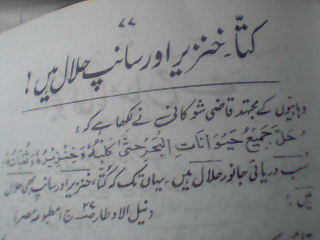 ۷۷
کتّا۔ خنزیر اور سانپ حلال ہیں!
وہابیوں کے مجتہد قاضی شوکانی نے لکھا ہے کہ:
حَلَّ جَمِيْعُ حَيَوَانَاتِ الْبَحْرِ حَتَّى كَلْبُهٗ وَخِنْزِيْرُهٗ وَثُعْبَانُهٗ
سب دریائی جانور حلال ہیں۔ یہاں تک کہ کُتّا، خنزیر اور سانپ بھی حلال
ہیں:
(نیل الاوطار ص۲۷ ج۱ مطبوعہ مصر)